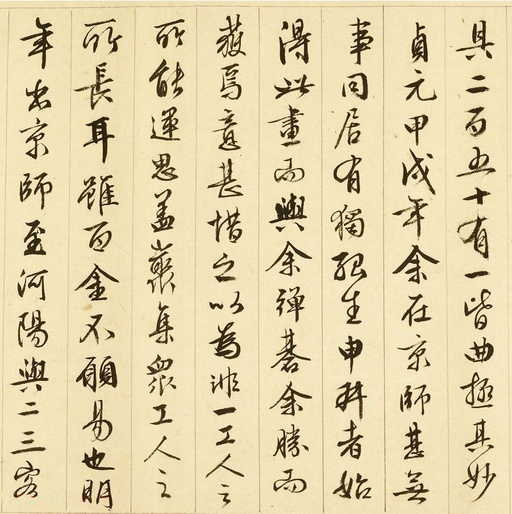 具二百五十有一皆曲極其妙
貞元甲戌年余在京師甚無
事同居有獨孤生申叔者始
得此畫而與余彈碁余勝而
獲焉意甚惜之以為非一工人之
所能運思蓋藂集衆工人之
所長耳雖百金不願易也明
年出京師至河陽與二三客